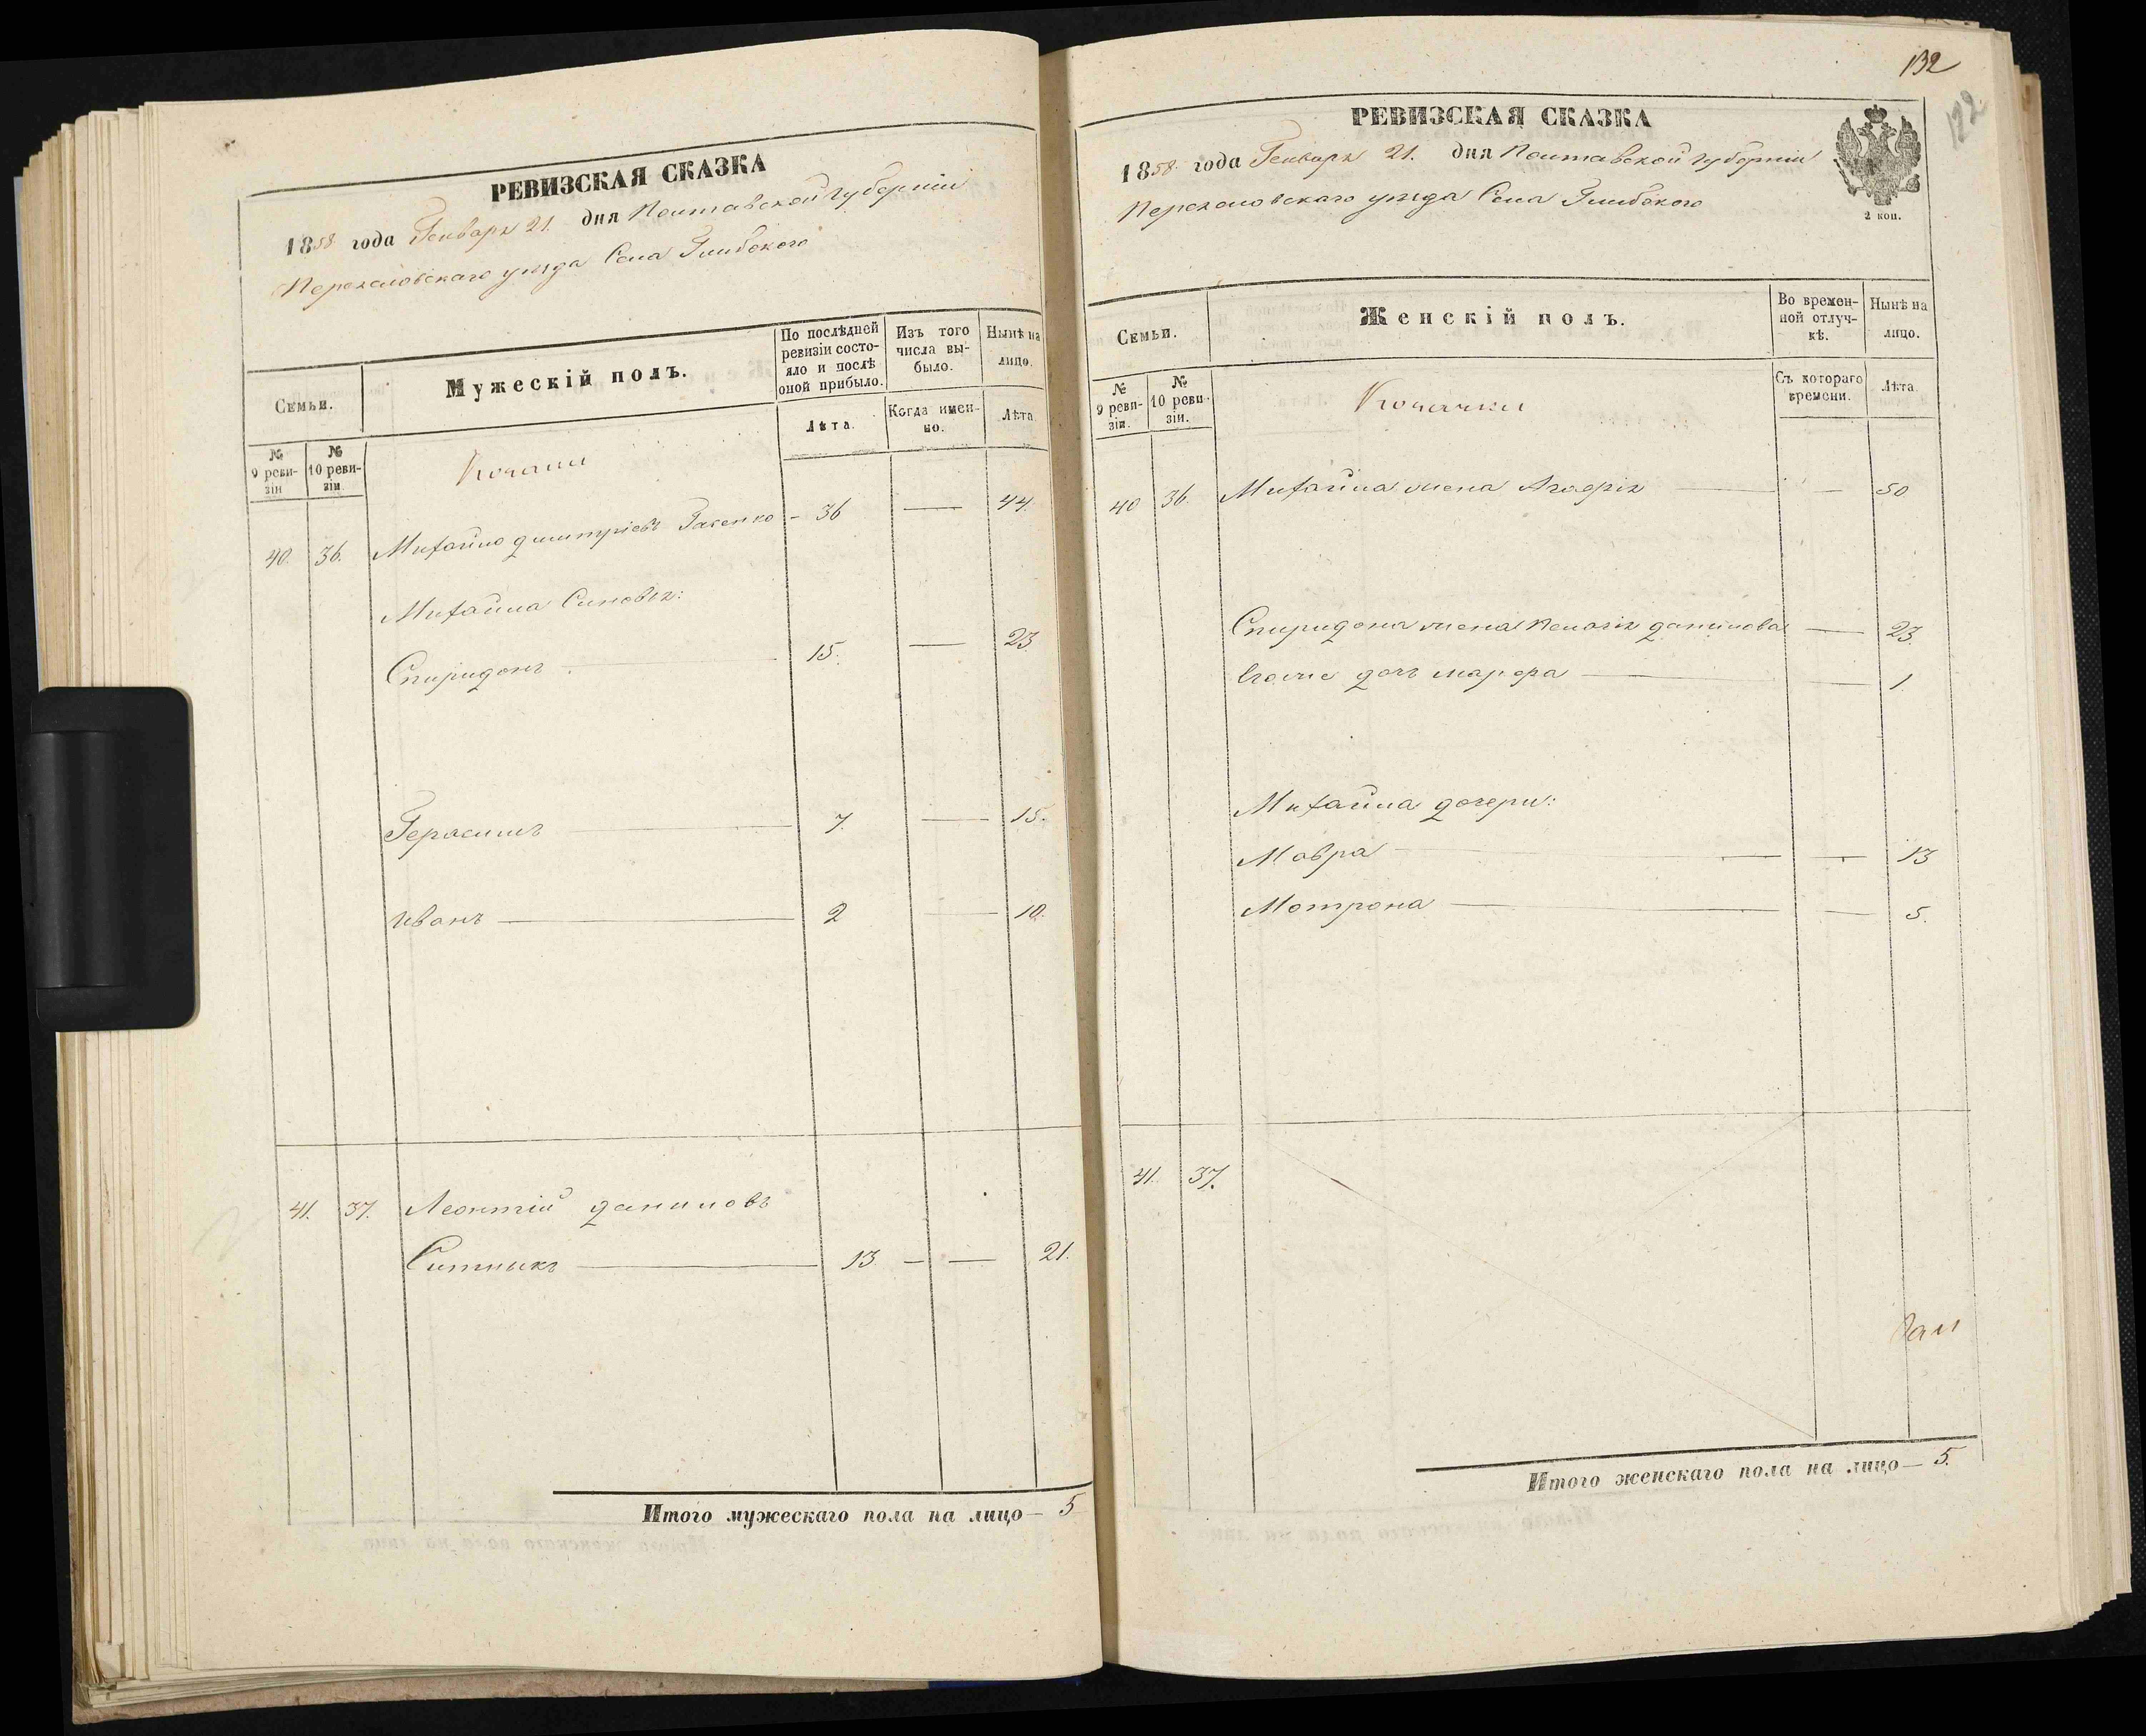 РЕВИЗСКАЯ СКАЗКА
1858 года Генваря 21. дня Полтавской Губерніи
Переяславскаго уезда Села Глибокого
Семьи.
Мужескій полъ.
По послѣдней ревизіи состояло и послѣ оной прибыло.
Изъ того числа выбыло.
Нынѣ на лицо.
№ 9 ревизіи
№ 10 ревизіи
Лѣта.
Когда именно.
Лѣта
Козаки
40. 36. Михайло Дмитріевъ – 36 — 44.
Михайла Синовья:
Спиридонъ. — 15. — 23
Герасимъ — 7. — 15.
Иванъ — 2 — 10.
41. 37. Леонтій Даниловъ
Ситникъ — 13 — — 21.
Итого мужескаго пола на лицо — 5
132
132.
РЕВИЗСКАЯ СКАЗКА
1858 года Генваря 21. дня Полтавской Губерніи
Переяславскаго уезда Села Глибокого
2 коп.
Семьи.
Женскій полъ.
Во временной отлучкѣ.
Нынѣ на лицо.
№ 9 ревизіи.
№ 10 ревизіи.
Съ котораго времени.
Лѣта.
Козачки
40 36. Михайла жена Агафія — — 50
Спиридона жена Пелагія Данилова — 23.
Егоже дочь Марфа — — 1.
Михайла дочери:
Мавра — — — 13
Мотрона — — 5.
41. 37.
Итого женскаго пола на лицо — 5.